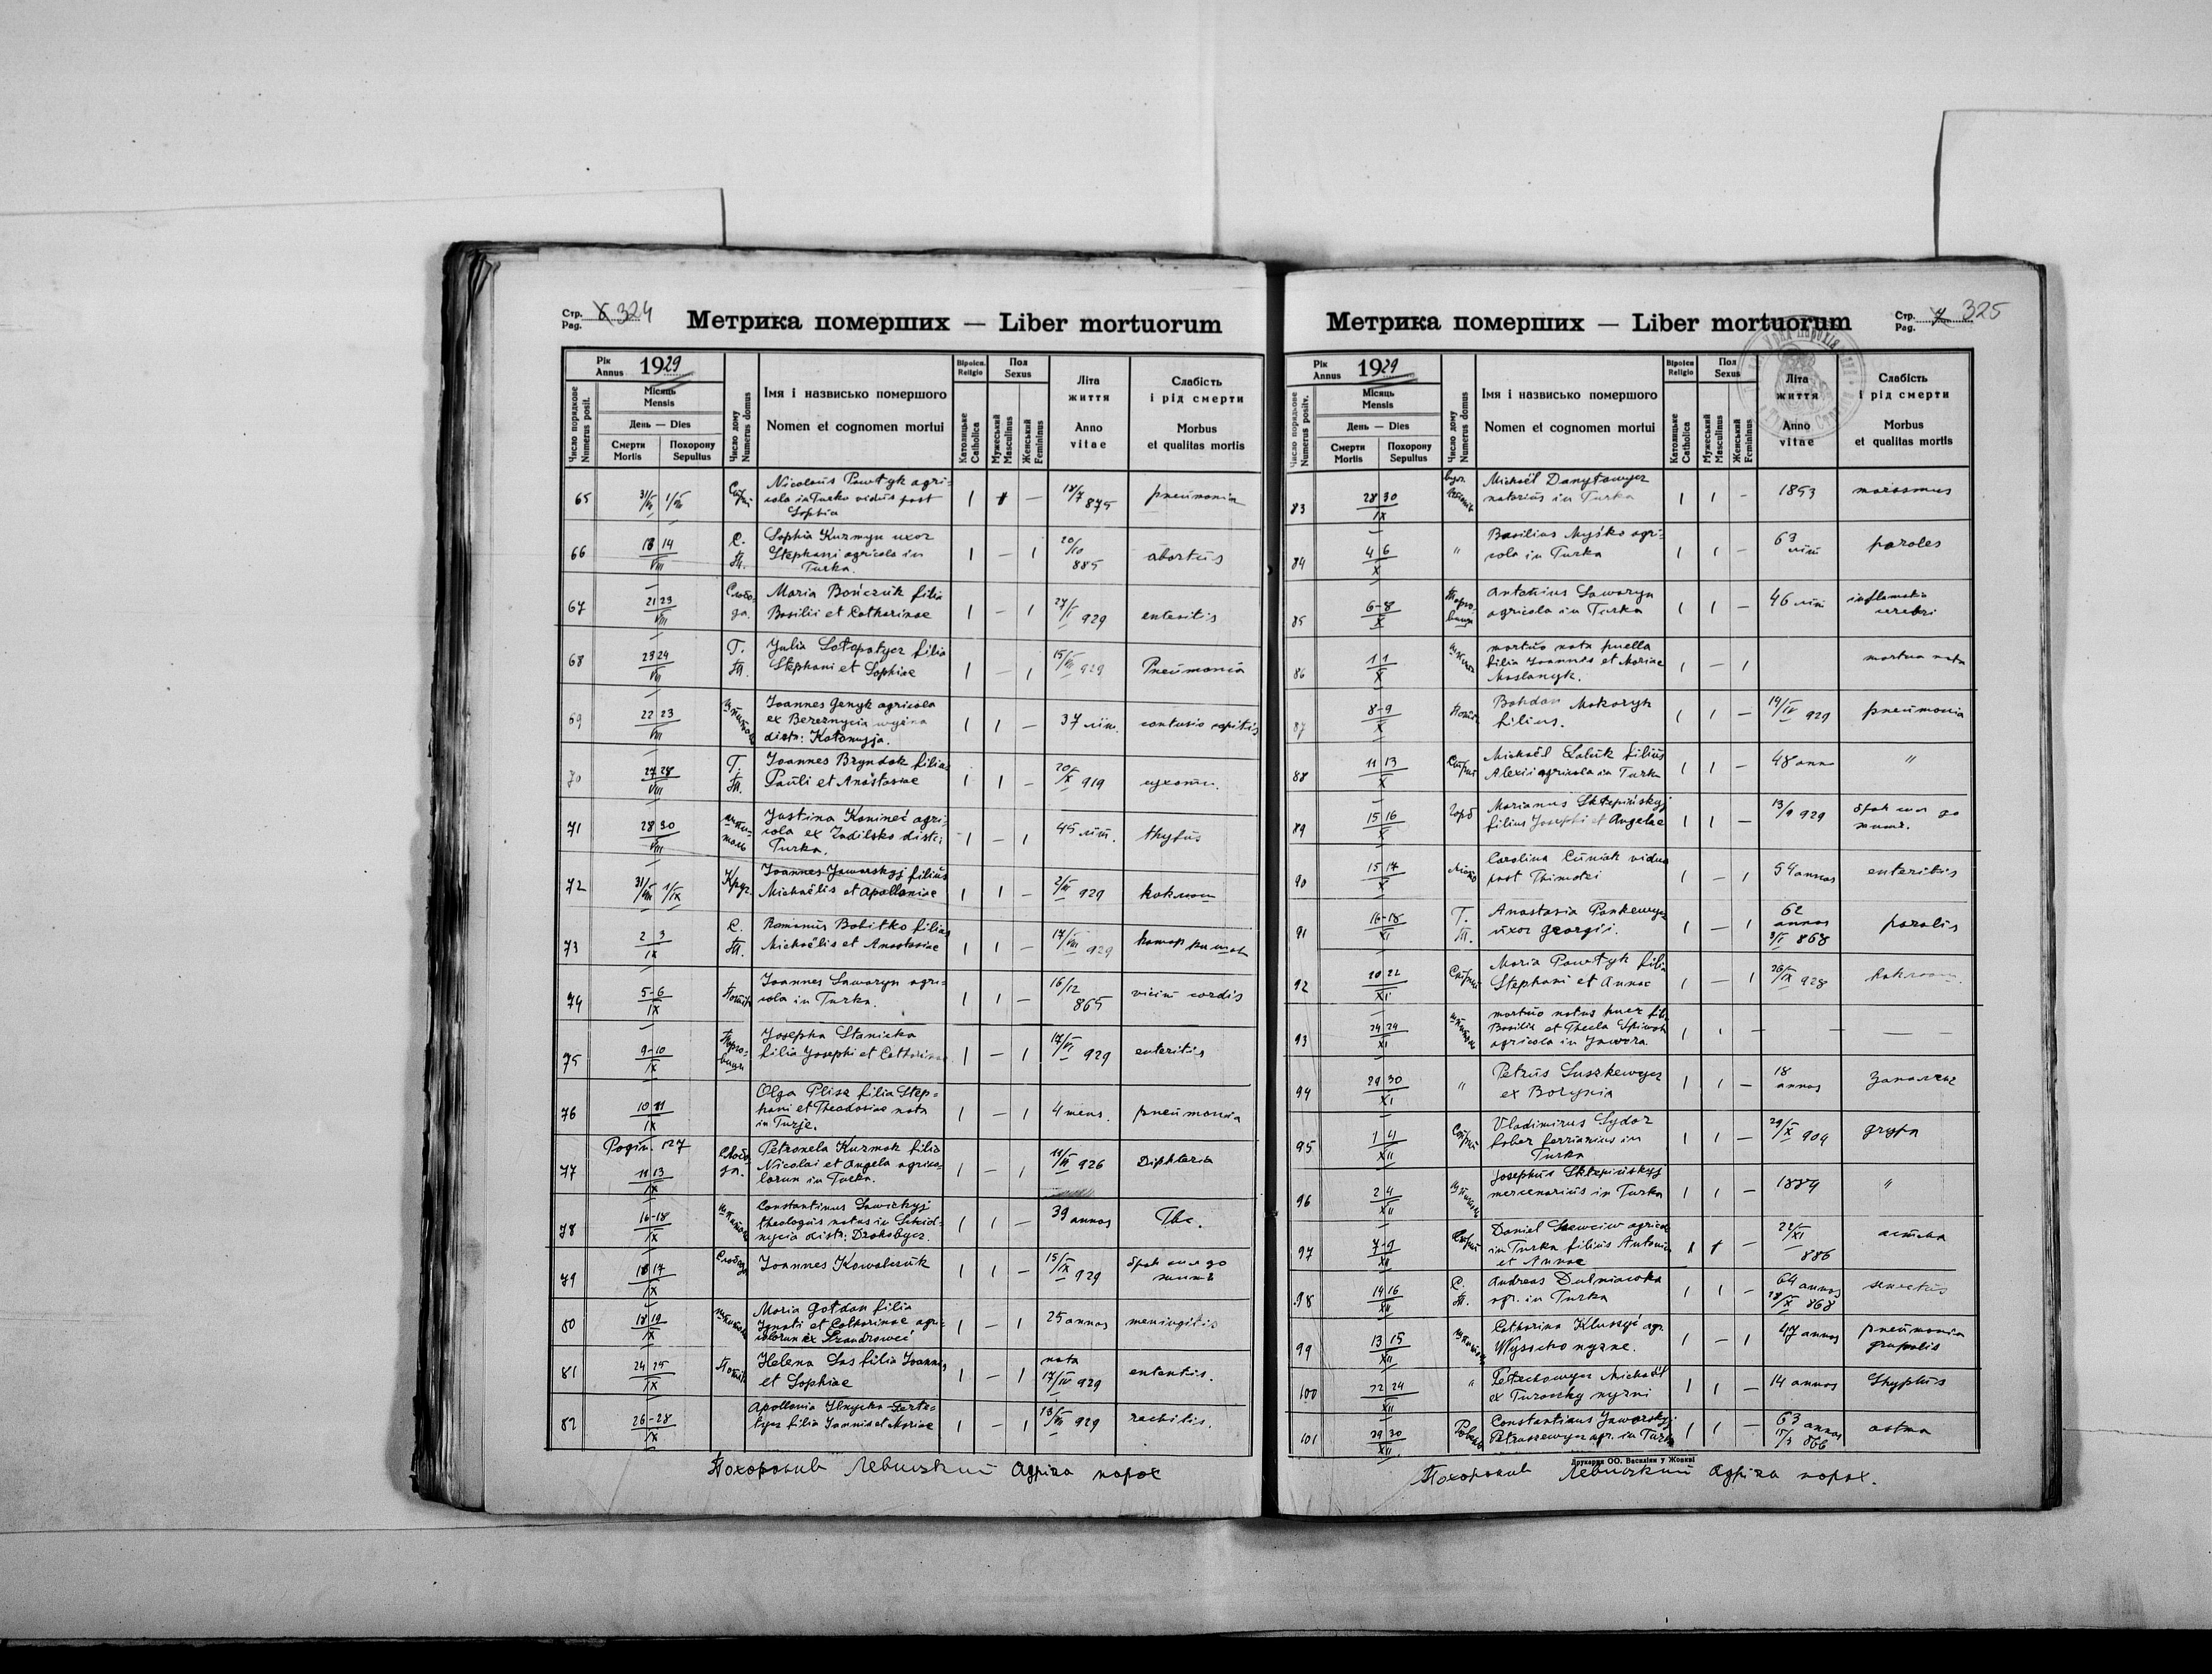 Стр. Pag. 324
Метрика померших — Liber mortuorum
Рік Annus 1929
Число порядкове Numerus posit.
Місяць Mensis
День — Dies
Смерти Mortis
Похорону Sepultus
Число дому Numerus domus
Імя і назвисько помершого
Nomen et cognomen mortui
Віроісп. Religio
Католицьке Catholica
Пол Sexus
Мужеський Masculinus
Женський Femininus
Літа життя
Anno vitae
Слабість і рід смерти
Morbus et qualitas mortis
65 31/VII 1/VIII
Nicolaus Pawtyk agri-
cola in Turka viduus post
Sophia
1 1 — 18/7 875 pneumonia
66 13 14 VIII С. Пл.
Sophia Kuzmyn uxor
Stephani agricola in
Turka.
1 — 1 20/10 885 abortus
67 21 23 VIII Слобо-да.
Maria Bończuk filia
Basilii et Catharinae
1 — 1 27/I 929 enteritis
68 23 24 VIII
Julia Łotapatycz filia
Stephani et Sophiae
1 — 1 15/VII 929 Pneumonia
69 22 23 VIII шпиталь
Joannes Genyk agricola
ex Bereznycia wyżna
distr: Kołomyja.
1 1 — 37 літ. contusio capitis
70 27 28 VIII
Joannes Bryndak filius
Pauli et Anastasiae
1 1 — 20/X 919 сухоти.
71 28 30 VIII шпи-таль
Justina Komineć agri-
cola ex Zadilsko distr:
Turka.
1 — 1 45 літ. thyfus
72 31/VIII 1/IX
Joannes Jaworskyj filius
Michaëlis et Apolloniae
1 1 — 2/VI 929 коклюш
73 2 3 IX
Romanus Bobitko filius
Michaëlis et Anastasiae
1 1 — 17/VIII 929 катар кишок
74 5-6 IX Потік
Joannes Laworyn agri-
cola in Turka.
1 1 — 16/12 865 vicium cordis
75 9-10 IX Торго-виця
Josepha Stanicka
filia Josephi et Catharinae
1 — 1 17/VI 929 enteritis
76 10 11 IX
Olga Plisz filia Step-
hani et Theodosiae nata
in Turje.
1 — 1 4 mens. pneumonia
77 11 13 IX Слобо-да.
Petronela Kuzmak filia
Nicolai et Angela agrico-
larum in Turka.
1 — 1 11/VI 926 Diphteria
78 16-18 IX шпиталь
Constantinus Sawickyj
theologus natus in Schid-
nycia distr: Drohobycz.
1 1 — 39 annos Tbc.
79 16 17 IX Слобода
Joannes Kowalczuk
1 1 — 15/IX 929 брак сил до життя
80 18 19 IX шпиталь
Maria Gotdan filia
Ignati et Catharinae agri-
colarum ex
1 — 1 25 annos meningitis
81 24 25 IX Потік
Helena Sas filia Joannis
et Sophiae
1 — 1 nata 17/IV 929 enteritis.
82 26-28 IX
Apollonia Ilnycka-Ferta-
tycz filia Joannis et Mariae
1 — 1 13/VIII 929 rachitis.
Похоронив Левицкий Адріян парох
Стр. Pag. 325
Метрика померших — Liber mortuorum
Рік Annus 1929
Число порядкове Numerus positv.
Місяць Mensis
День — Dies
Смерти Mortis
Похорону Sepultus
Число дому Numerus domus
Імя і назвисько помершого
Nomen et cognomen mortui
Віроісп. Religio
Католицьке Catholica
Пол Sexus
Мужеський Masculinus
Женський Femininus
Літа життя
Anno vitae
Слабість і рід смерти
Morbus et qualitas mortis
83 28 30 IX
Michaël Danyłowycz
notarius in Turka
1 1 - 1853 marasmus
84 4 6 X "
Basilius Myśko agri-
cola in Turka
1 1 - 63 літ paroles
85 6-8 X Торго-виця
Antonius Laworyn
agricola in Turka
1 1 — 46 літ inflamatio cerebri
86 1 1 X
mortuo nata puella
filia Joannis et Mariae
Maslanyk.
1 — 1 mortua nata
87 8-9 X Потік
Bohdan Mokoryk
filius.
1 1 — 14/IV 929 pneumonia
88 11 13 X Стрий
Michaël Łaluk filius
Alexii agricola in Turka
1 1 — 48 ann "
89 15 16 X Горб
Marianus Sklepińskyj
filius Josephi et Angelae
1 1 — 13/9 929 брак сил до життя.
90 15 17 X
Carolina Cuniak vidua
post Thimotei
1 — 1 54 annos enteritis
91 16-18 XI
Anastasia Pankewycz
uxor Georgii.
1 — 1 62 annos 3/I 868 paralis
92 20 22 XI Стрий
Maria Pawtyk filia
Stephani et Annae
1 — 1 26/IX 928 коклюш.
93 24 24 XI шпиталь
mortuo natus puer fil.
Basilii et Thecla Spiwak
agricola in Jawora.
1 1 — — —
94 29 30 XI "
Petrus Suszkewycz
ex Borynia
1 1 — 18 annos Запаленє
95 1 4 XII Стрий
Vladimirus Sydor
faber ferrarius in
Turka
1 1 — 29/X 904 grypa
96 2 4 XII шпиталь
Josephus Sklepińskyj
mercenarius in Turka
1 1 — 1889 "
97 7-9 XII Стрий
Daniel Szewciw agricola
in Turka filius Antonii
et Annae
1 1 — 22/XI 886 астма
98 14 16 XII С. Пл.
Andreas Dutniawka
agr. in Turka
1 1 — 64 annos 28/X 868 senectus
99 13 15 XII шпиталь
Catharina Klusyć agr.
Wysocko nyżne.
1 — 1 47 annos pneumonia grupalis
100 22 24 XII "
Petrechowycz Michaël
ex Turoczky nyżni
1 1 — 14 annos thyphus
101 29 30 XII
Constantinus Jaworskyj
Petraszewycz agr. in Turka
1 1 — 63 annos 17/3 866 astma
Друкарня ОО. Василіян у Жовкві
Похоронив Левицкий Адріян парох.